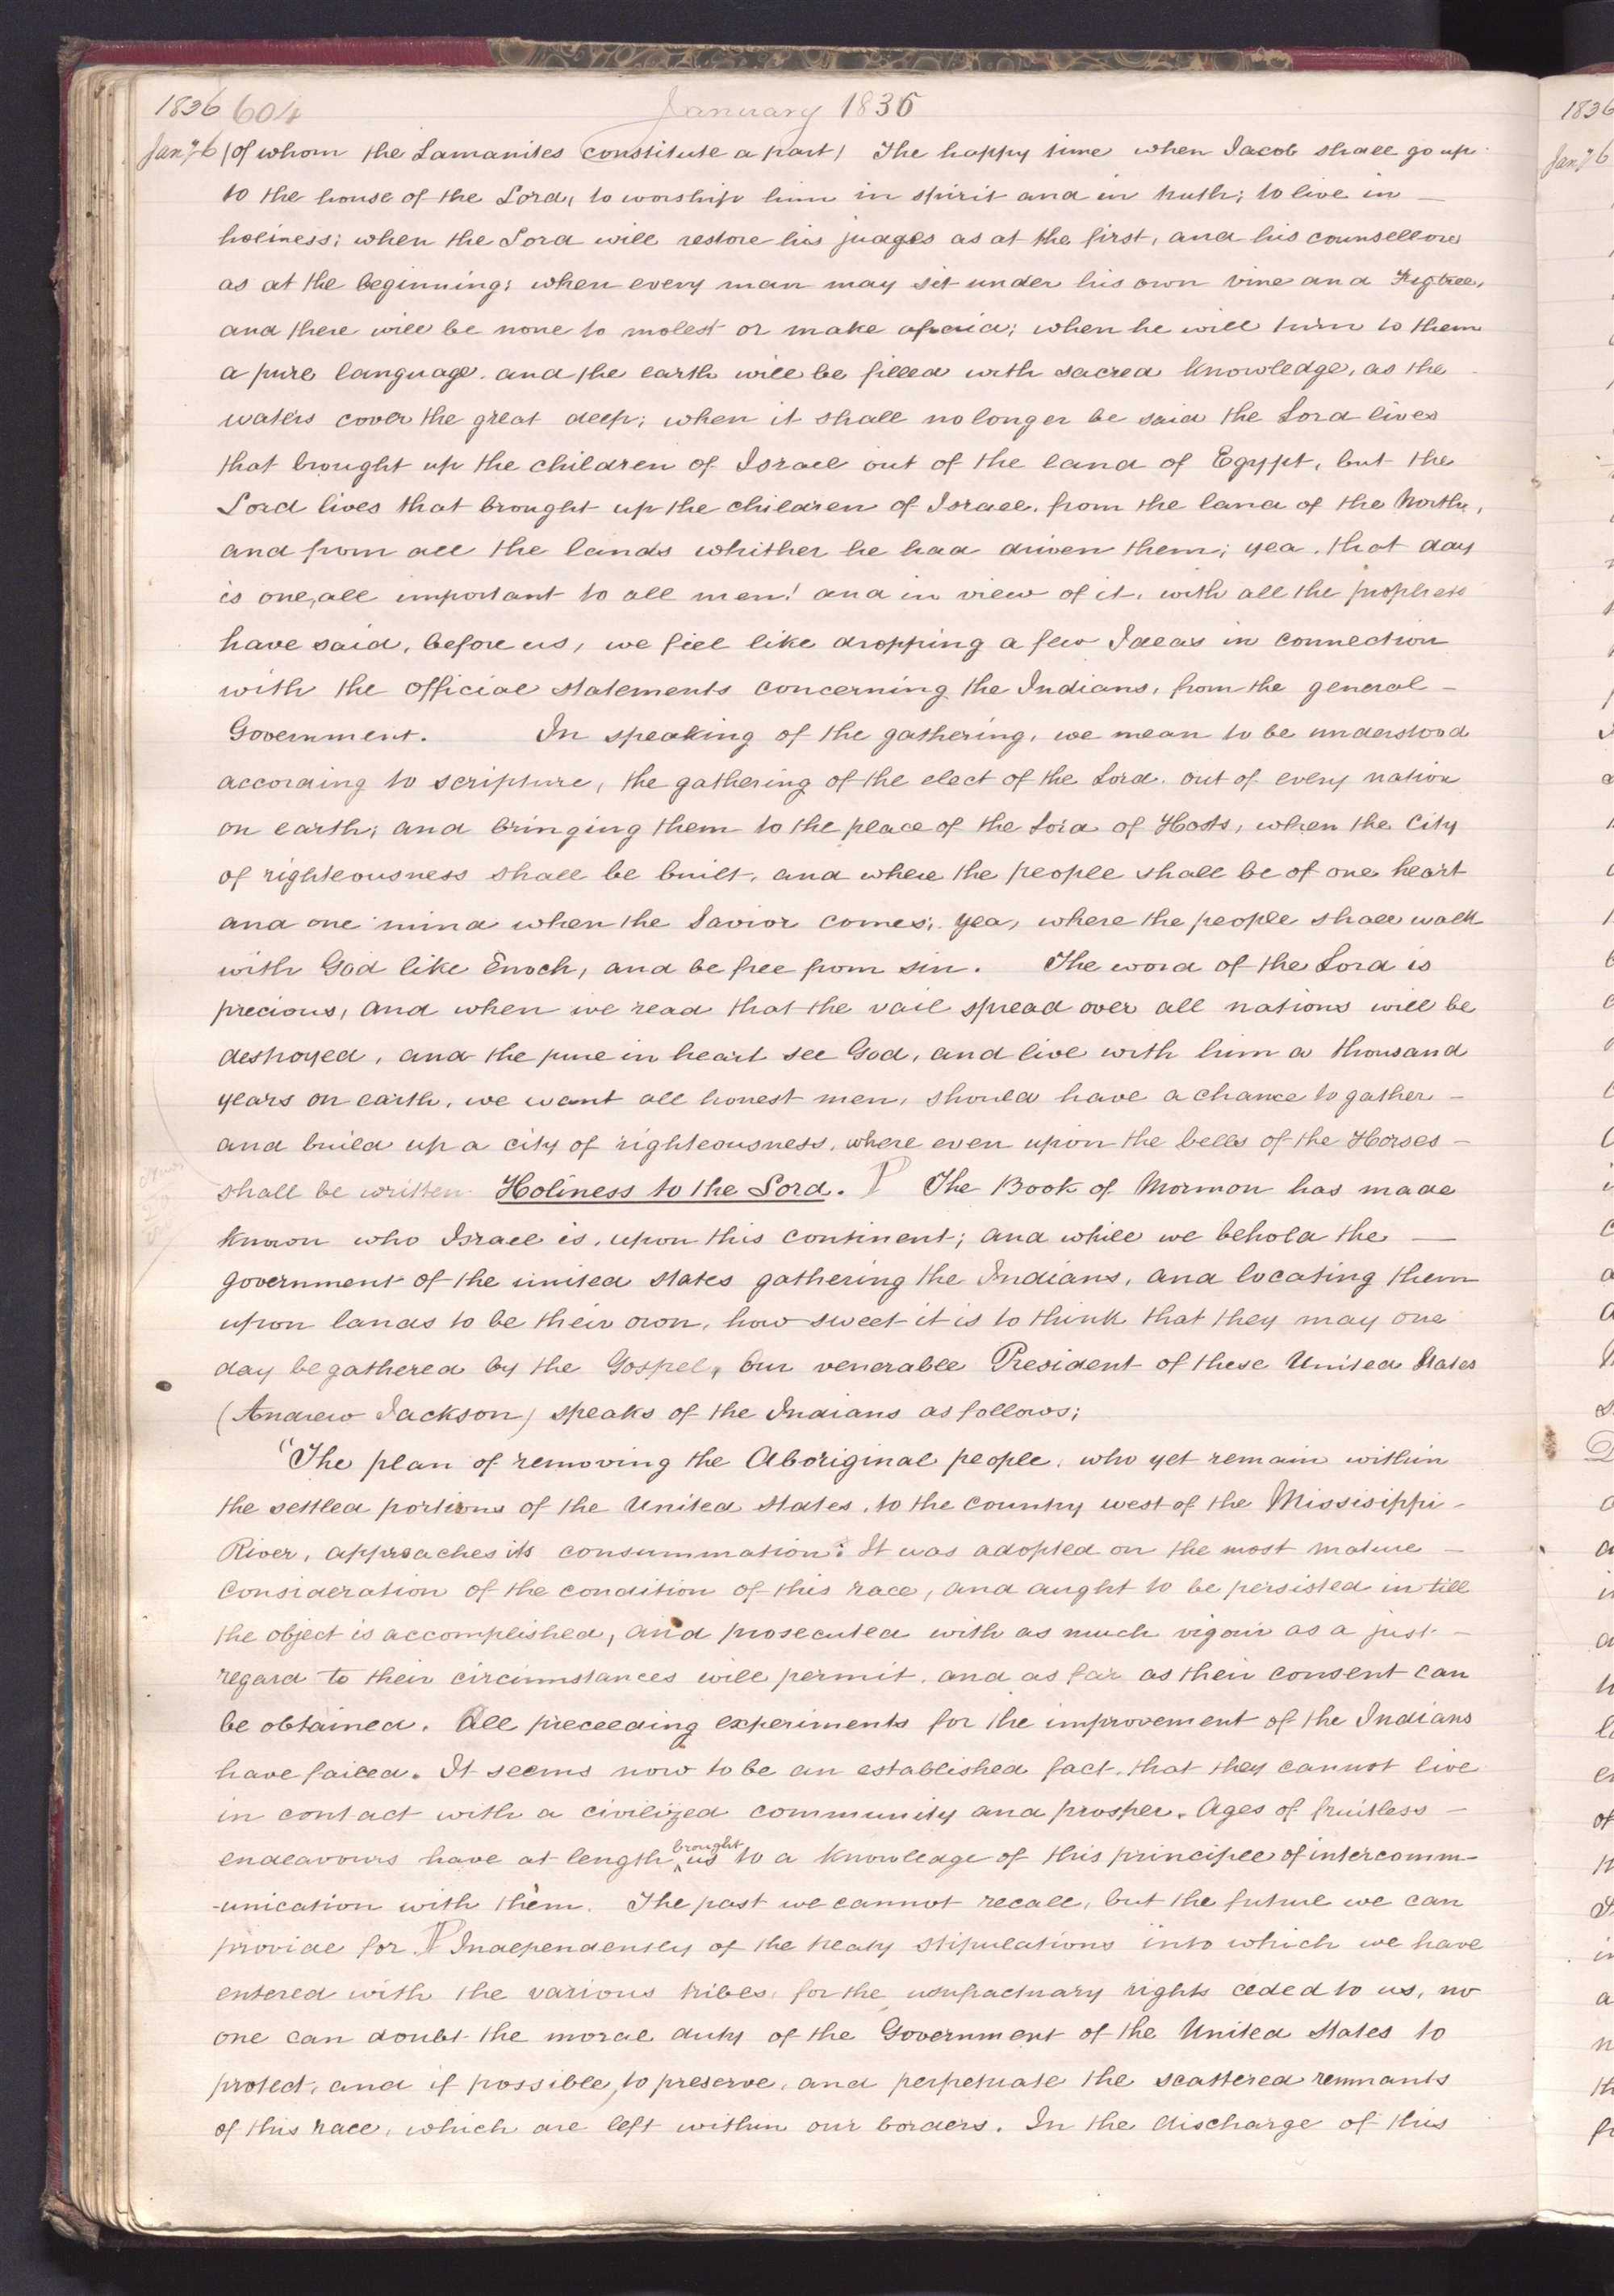 1836 604 January 1836
Jany 6 (of whom the Lamanites constitute a part) The happy time when Jacob shall go up
to the house of the Lord, to worship him in spirit and in truth; to live in —
holiness; when the Lord will restore his judges as at the first, and his counsellors
as at the beginning; when every man may sit under his own vine and Figtree,
and there will be none to molest or make afraid; when he will turn to them
a pure language. and the earth will be filled with sacred knowledge, as the
waters cover the great deep; when it shall no longer be said the Lord lives
that brought up the children of Israel out of the land of Egypt, but the
Lord lives that brought up the children of Israel, from the land of the North,
and from all the lands whither he had driven them; yea, that day
is one, all important to all men! and in view of it, with all the prophets
have said, before us, we feel like dropping a few Ideas in connection
with the official statements concerning the Indians, from the general —
Government. In speaking of the gathering, we mean to be understood
according to scripture, the gathering of the elect of the Lord. out of every nation
on earth; and bringing them to the place of the Lord of Hosts, when the City
of righteousness shall be built, and where the people shall be of one heart
and one mind when the Savior comes; yea, where the people shall walk
with God like Enoch, and be free from sin. The word of the Lord is
precious, and when we read that the vail spread over all nations will be
destroyed, and the pure in heart see God, and live with him a thousand
years on earth, we want all honest men, should have a chance to gather —
and build up a city of righteousness, where even upon the bells of the Horses —
shall be written Holiness to the Lord. ¶ The Book of Mormon has made
known who Israel is, upon this continent; and while we behold the —
government of the united states gathering the Indians, and locating them
upon lands to be their own, how sweet it is to think that they may one
day be gathered by the Gospel, Our venerable President of these United States
(Andrew Jackson) speaks of the Indians as follows;
"The plan of removing the Aboriginal people, who yet remain within
the settled portions of the United States, to the country west of the Missisippi —
River, approaches its consummation: It was adopted on the most mature —
consideration of the condition of this race, and aught to be persisted in till
the object is accomplished, and prosecuted with as much vigour as a just —
regard to their circumstances will permit, and as far as their consent can
be obtained. All preceeding experiments for the improvement of the Indians
have failed. It seems now to be an established fact, that they cannot live
in contact with a civilized community and prosper. Ages of fruitless —
endeavours have at length brought us to a knowledge of this principle of intercomm-
-unication with them. The past we cannot recall, but the future we can
provide for. ¶ Independently of the treaty stipulations into which we have
entered with the various tribes, for the usufructuary rights ceded to us, no
one can doubt the moral duty of the Government of the United States to
protect, and if possible, to preserve, and perpetuate the scattered remnants
of this race, which are left within our borders. In the discharge of this
1836
Jany 6